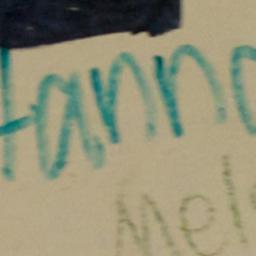 Hanna
Mel